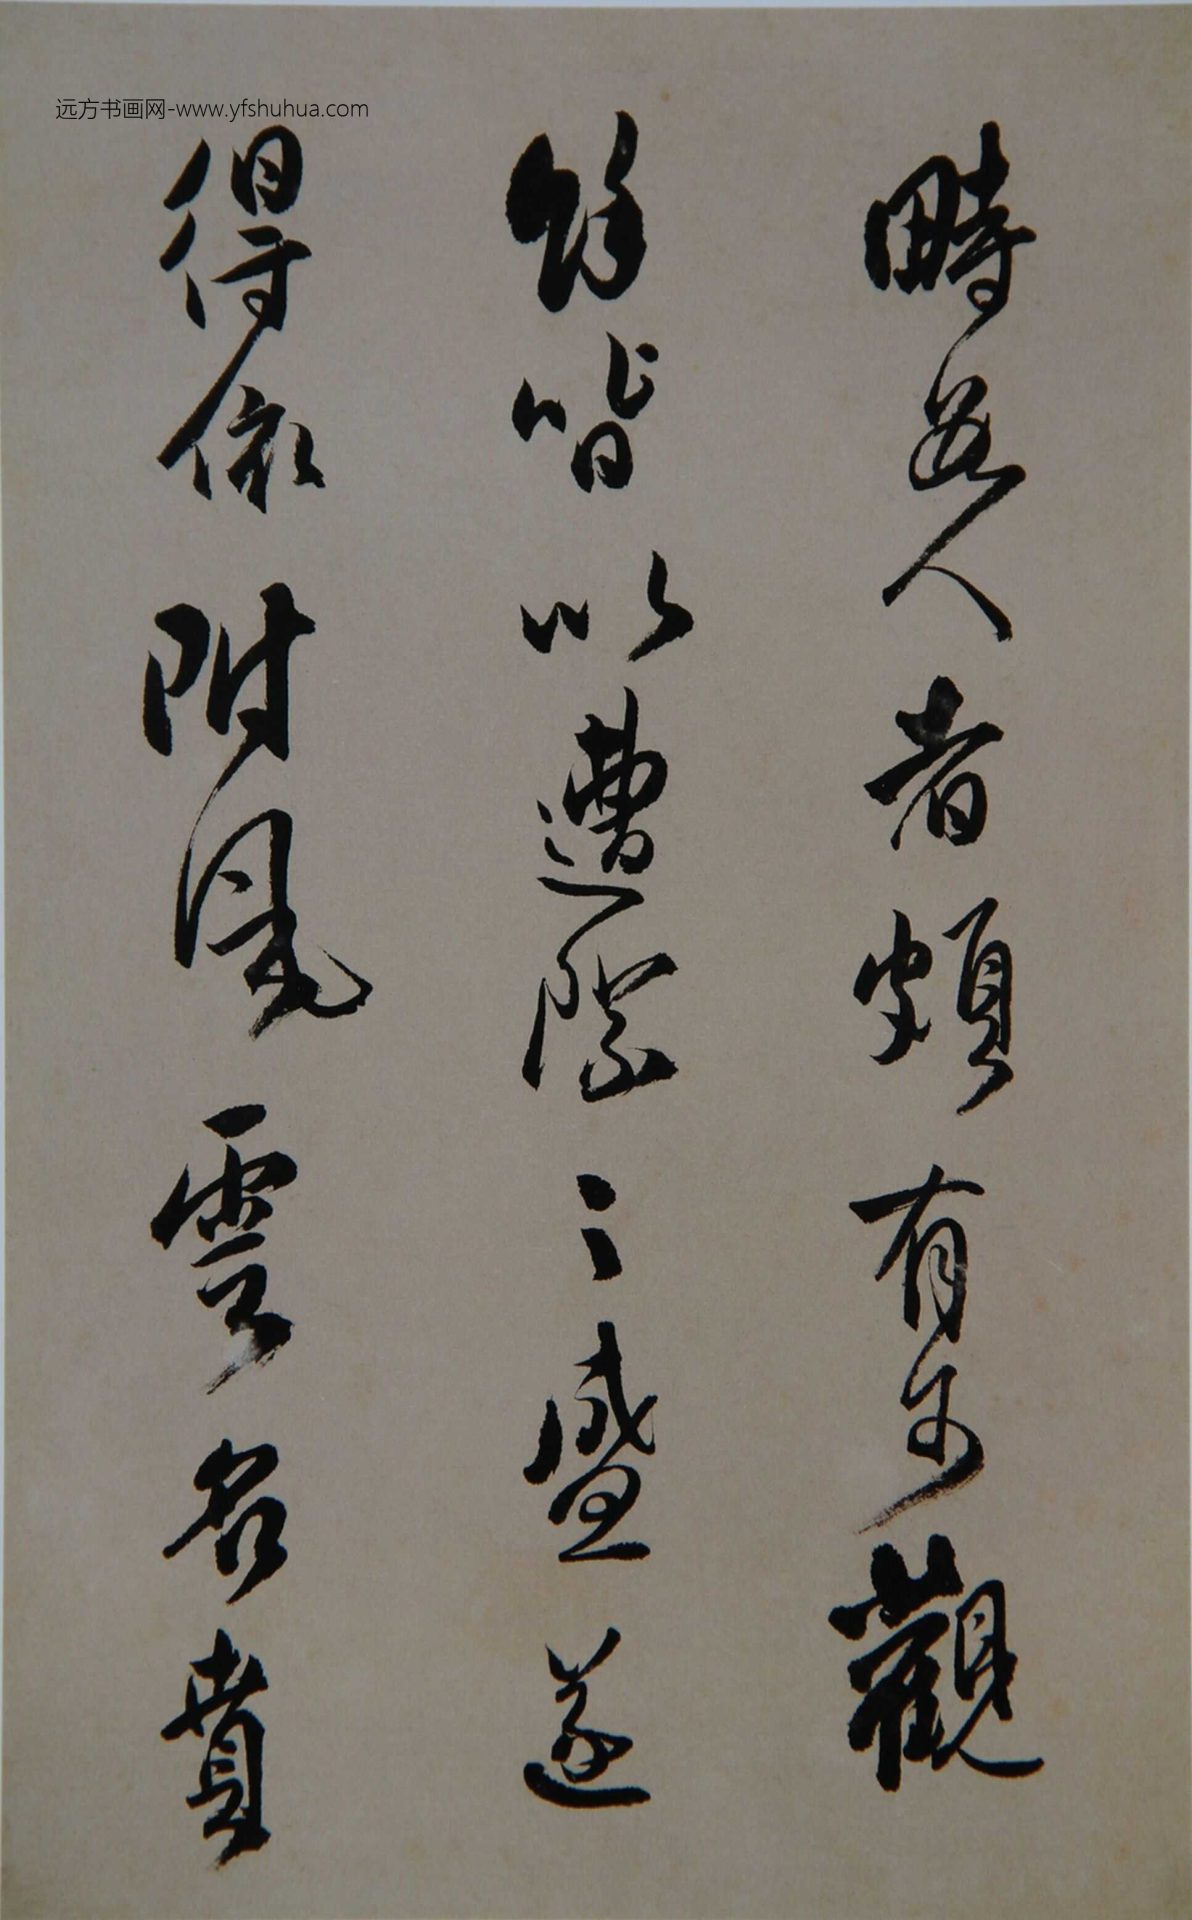 远方书画网-www.yfshuhua.com
疇若人者頗有可觀
餘皆以遭際之盛遂
得依附風雲名賁